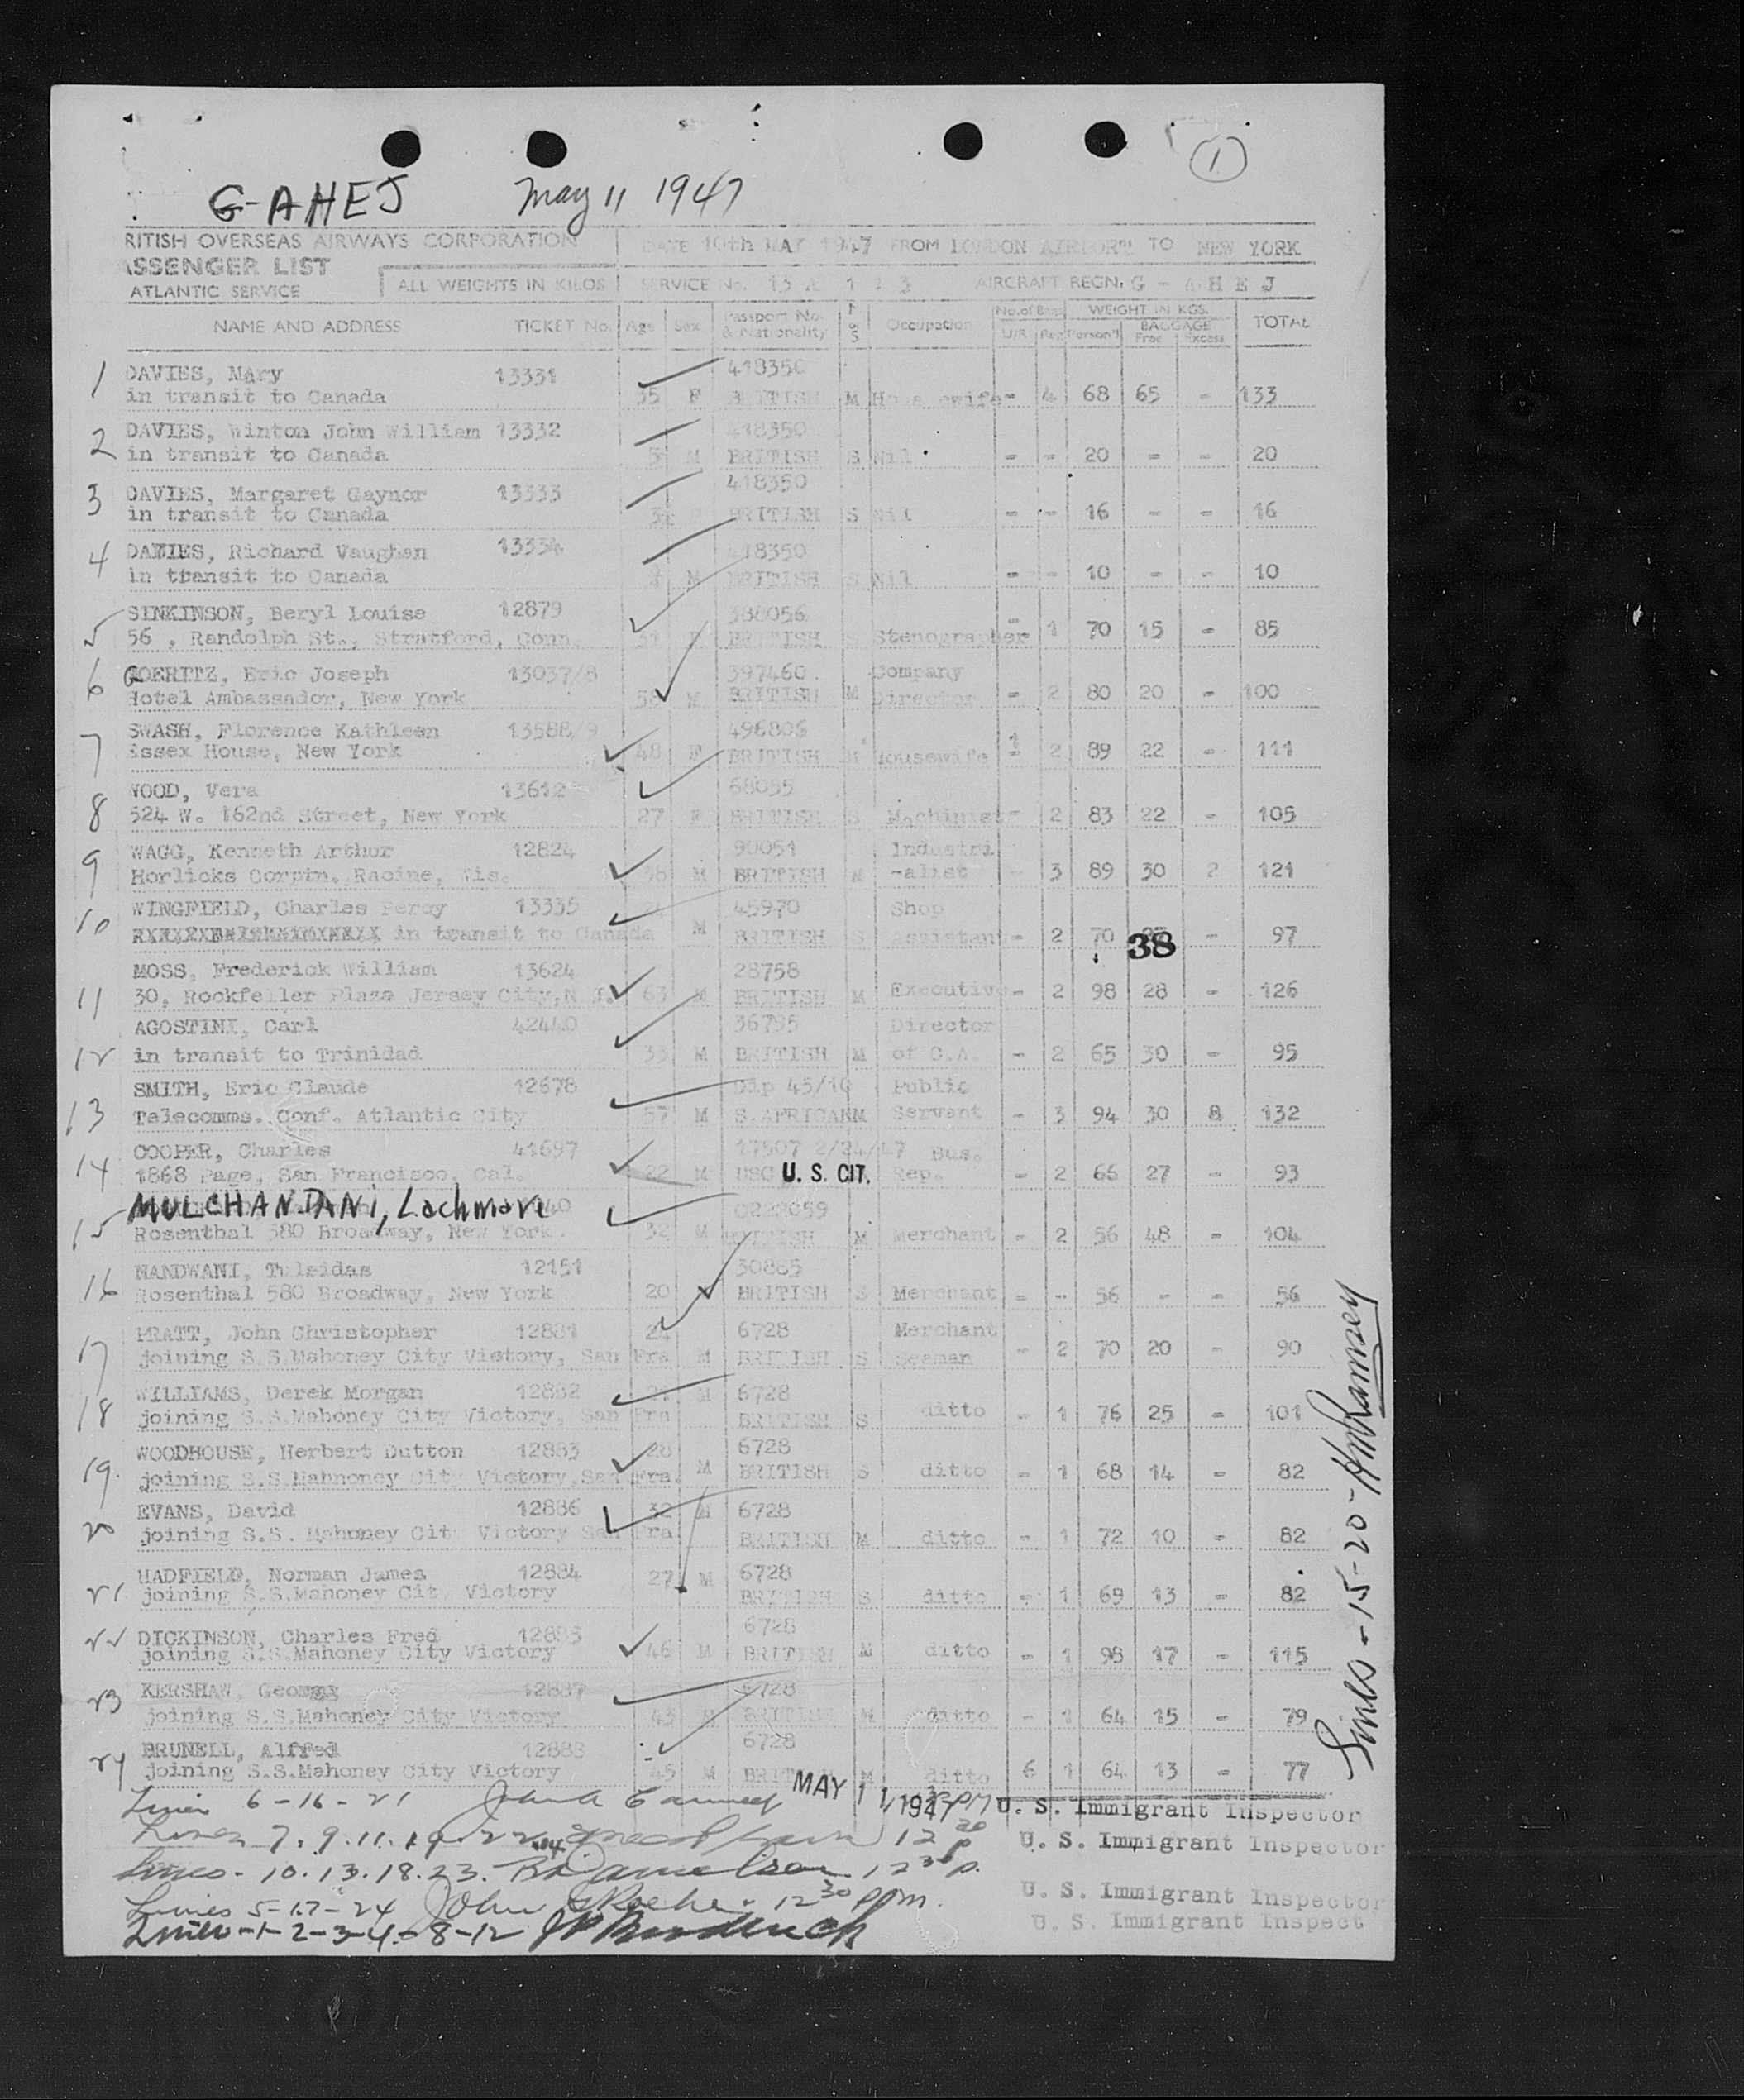 1
G-AHEJ May 11 1947
RITISH OVERSEAS AIRWAYS CORPORATION DATE 10th MAY 1947 FROM LONDON AIRPORT TO NEW YORK
ASSENGER LIST
ATLANTIC SERVICE ALL WEIGHTS IN KILOS SERVICE No. AIRCRAFT REGN. G - A H E J
NAME AND ADDRESS TICKET No. Age Sex Passport No. & Nationality M or S Occupation No. of Bags U/R Reg WEIGHT IN KGS. Person'l BAGGAGE Free Excess TOTAL
1 DAVIES, Mary 13331 418350
in transit to Canada 35 F BRITISH M Housewife - 4 68 65 - 133
2 DAVIES, Winton John William 13332 418350
in transit to Canada 5 M BRITISH S Nil - - 20 - - 20
3 DAVIES, Margaret Gaynor 13333 418350
in transit to Canada BRITISH S Nil - - 16 - - 16
4 DAVIES, Richard Vaughan 13334 418350
in transit to Canada M BRITISH S Nil - - 10 - - 10
5 SINKINSON, Beryl Louise 12879 388056
56 , Randolph St., Stratford, Conn. F BRITISH S Stenographer - 1 70 15 - 85
6 GOERITZ, Eric Joseph 13037/8 397460 Company
Hotel Ambassador, New York 58 M BRITISH M Director - 2 80 20 - 100
7 SWASH, Florence Kathleen 13588/9 496806
Essex House, New York 48 F BRITISH Housewife 2 89 22 - 111
8 WOOD, Vera 13612 68055
524 W. 162nd Street, New York 27 F BRITISH S Machinist - 2 83 22 - 105
9 WAGG, Kenneth Arthur 12824 90051 Industri
Horlicks Corpin. Racine, Wis. 38 M BRITISH M -alist - 3 89 30 2 121
10 WINGFIELD, Charles Percy 13335 45970 Shop
in transit to Canada M BRITISH S Assistant - 2 70 38 - 97
11 MOSS, Frederick William 13624 28758
30, Rockfeller Plaza Jersey City, N J. 63 M BRITISH M Executive - 2 98 28 - 126
12 AGOSTINI, Carl 42440 36795 Director
in transit to Trinidad 33 M BRITISH M of C.A. - 2 65 30 - 95
13 SMITH, Eric Claude 12678 Dip 45/19 Public
Telecomms. Conf. Atlantic City 57 M S.AFRICAN M Servant - 3 94 30 8 132
14 COOPER, Charles 41697 17507 2/24/47 Bus.
1868 Page, San Francisco, Cal. 22 M USC U. S. CIT. Rep. - 2 66 27 - 93
15 MULCHANDANI, Lachman
Rosenthal 580 Broadway, New York. 32 M BRITISH M Merchant - 2 56 48 - 104
16 NANDWANI, Tulsidas 12151 30885
Rosenthal 580 Broadway, New York 20 M BRITISH S Merchant - - 56 - - 56
17 PRATT, John Christopher 12881 24 6728 Merchant
joining S.S.Mahoney City Victory, San Fra M BRITISH S Seaman - 2 70 20 - 90
18 WILLIAMS, Derek Morgan 12882 M 6728
joining S.S.Mahoney City Victory, San Fra BRITISH S ditto - 1 76 25 - 101
19. WOODHOUSE, Herbert Dutton 12883 28 6728
joining S.S.Mahnoney City Victory,San Fra. M BRITISH S ditto - 1 68 14 - 82
20 EVANS, David 12886 32 M 6728
joining S.S. Mahoney City Victory San Fra BRITISH M ditto - 1 72 10 - 82
21 HADFIELD, Norman James 12884 27 M 6728
joining S.S.Mahoney City Victory BRITISH S ditto - 1 69 13 - 82
22 DICKINSON, Charles Fred 12885 6728
joining S.S.Mahoney City Victory 46 M BRITISH M ditto - 1 98 17 - 115
23 KERSHAW, George 12887 6728
joining S.S.Mahoney City Victory 43 M BRITISH M ditto - 1 64 15 - 79
24 BRUNELL, Alfred 12888 6728
joining S.S.Mahoney City Victory 45 M BRITISH M ditto 6 1 64 13 - 77
Lines 6-16-21 MAY 11 1947 U. S. Immigrant Inspector
Lines 7. 9. 11. 19. 22 12 30 P U. S. Immigrant Inspector
Lines - 10. 13. 18. 23. 12 30 p.
Lines 5-17-24 John 12 30 pm. U. S. Immigrant Inspector
Lines -1-2-3-4-8-12 U. S. Immigrant Inspect
Lines - 15-20-